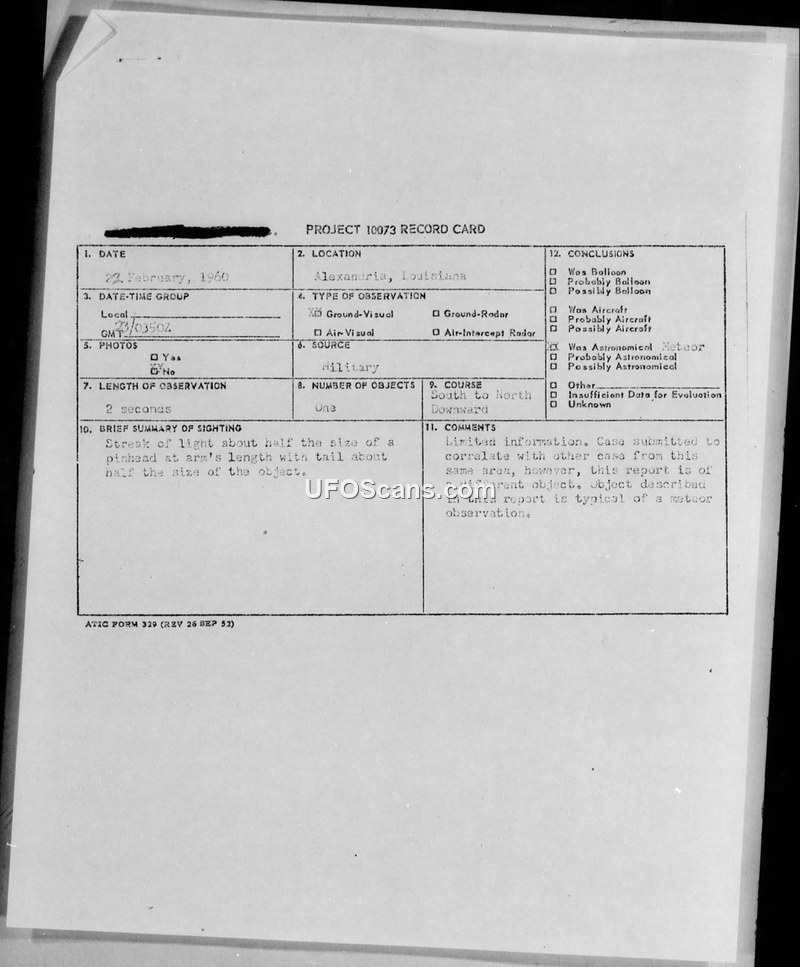 PROJECT 10073 RECORD CARD
1. DATE
22 February, 1960
2. LOCATION
Alexandria, Louisiana
12. CONCLUSIONS
Was Balloon
Probably Balloon
Possibly Balloon
Was Aircraft
Probably Aircraft
Possibly Aircraft
Was Astronomical Meteor
Probably Astronomical
Possibly Astronomical
Other
Insufficient Data for Evaluation
Unknown
3. DATE-TIME GROUP
Local
GMT 23/0350Z
4. TYPE OF OBSERVATION
Ground-Visual
Ground-Radar
Air-Visual
Air-Intercept Radar
5. PHOTOS
Yes
No
6. SOURCE
Military
7. LENGTH OF OBSERVATION
2 seconds
8. NUMBER OF OBJECTS
One
9. COURSE
South to North
Downward
10. BRIEF SUMMARY OF SIGHTING
Streak of light about half the size of a
pinhead at arm's length with tail about
half the size of the object.
11. COMMENTS
Limited information. Case submitted to
correlate with other case from this
same area, however, this report is of
a different object. Object described
in this report is typical of a meteor
observation.
UFOScans.com
ATIC FORM 329 (REV 26 SEP 52)